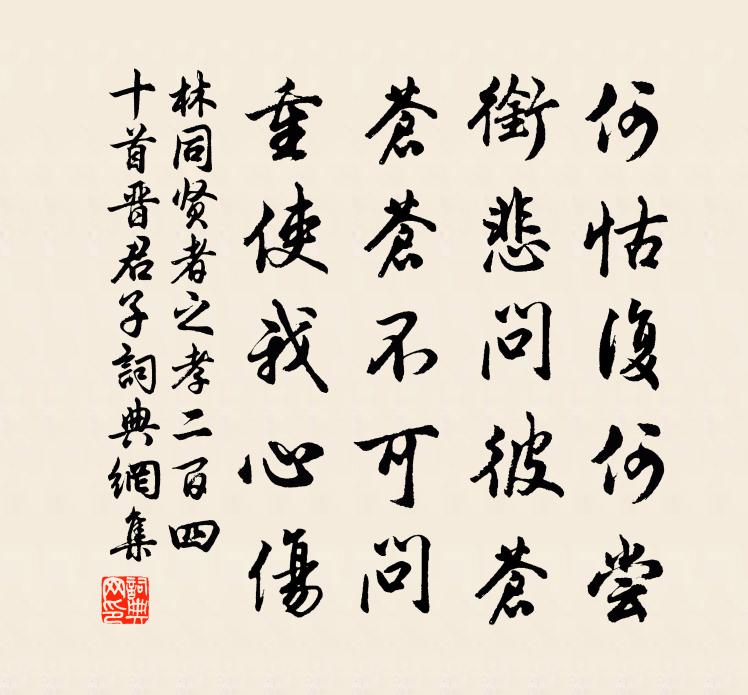 何怙復何嘗
銜悲問彼蒼
蒼蒼不可問
重使我心傷
林同贤者之孝二百四
十首晋君子詞典網集
詞典網印